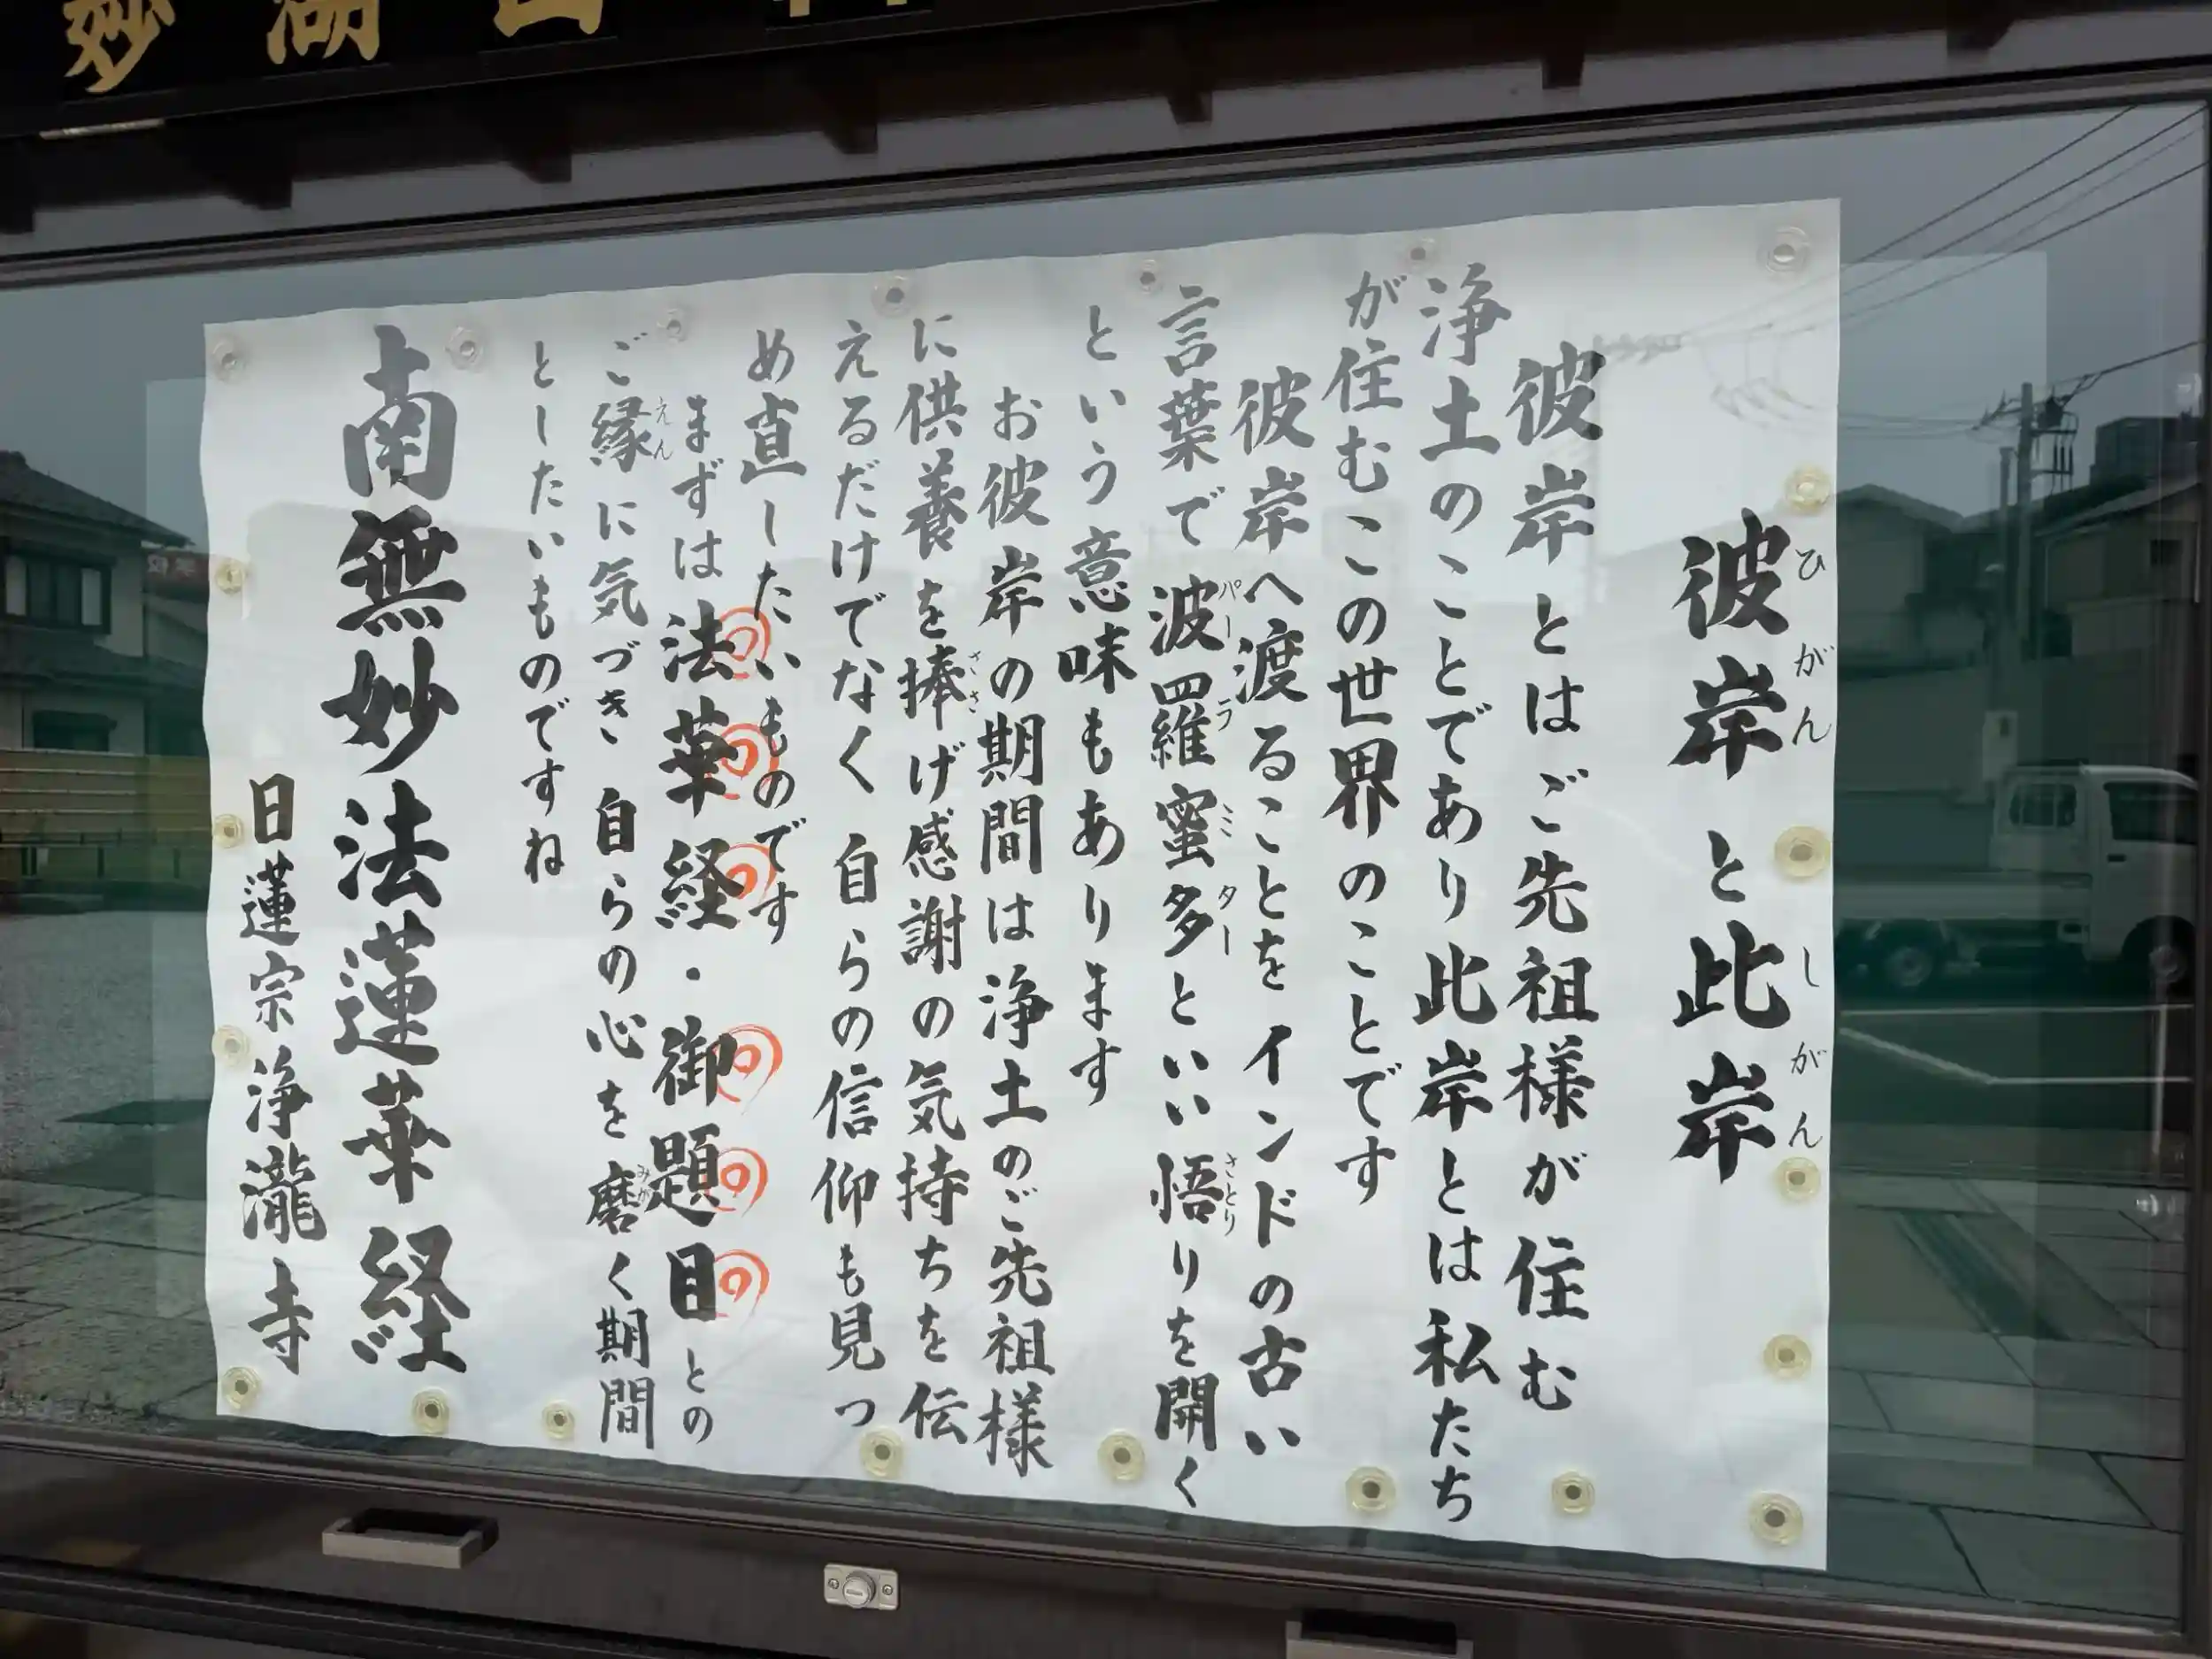 彼岸と此岸
ひがん
しがん
彼岸とはご先祖様が住む
浄土のことであり此岸とは私たち
が住むこの世界のことです
彼岸へ渡ることをインドの古い
言葉で波羅蜜多といい悟りを開く
パーラミター
さとり
という意味もあります
お彼岸の期間は浄土のご先祖様
に供養を捧げ感謝の気持ちを伝
ささ
えるだけでなく自らの信仰も見つ
め直したいものです
まずは法華経・御題目との
ご縁に気づき自らの心を磨く期間
えん
みが
としたいものですね
南無妙法蓮華経
日蓮宗浄瀧寺